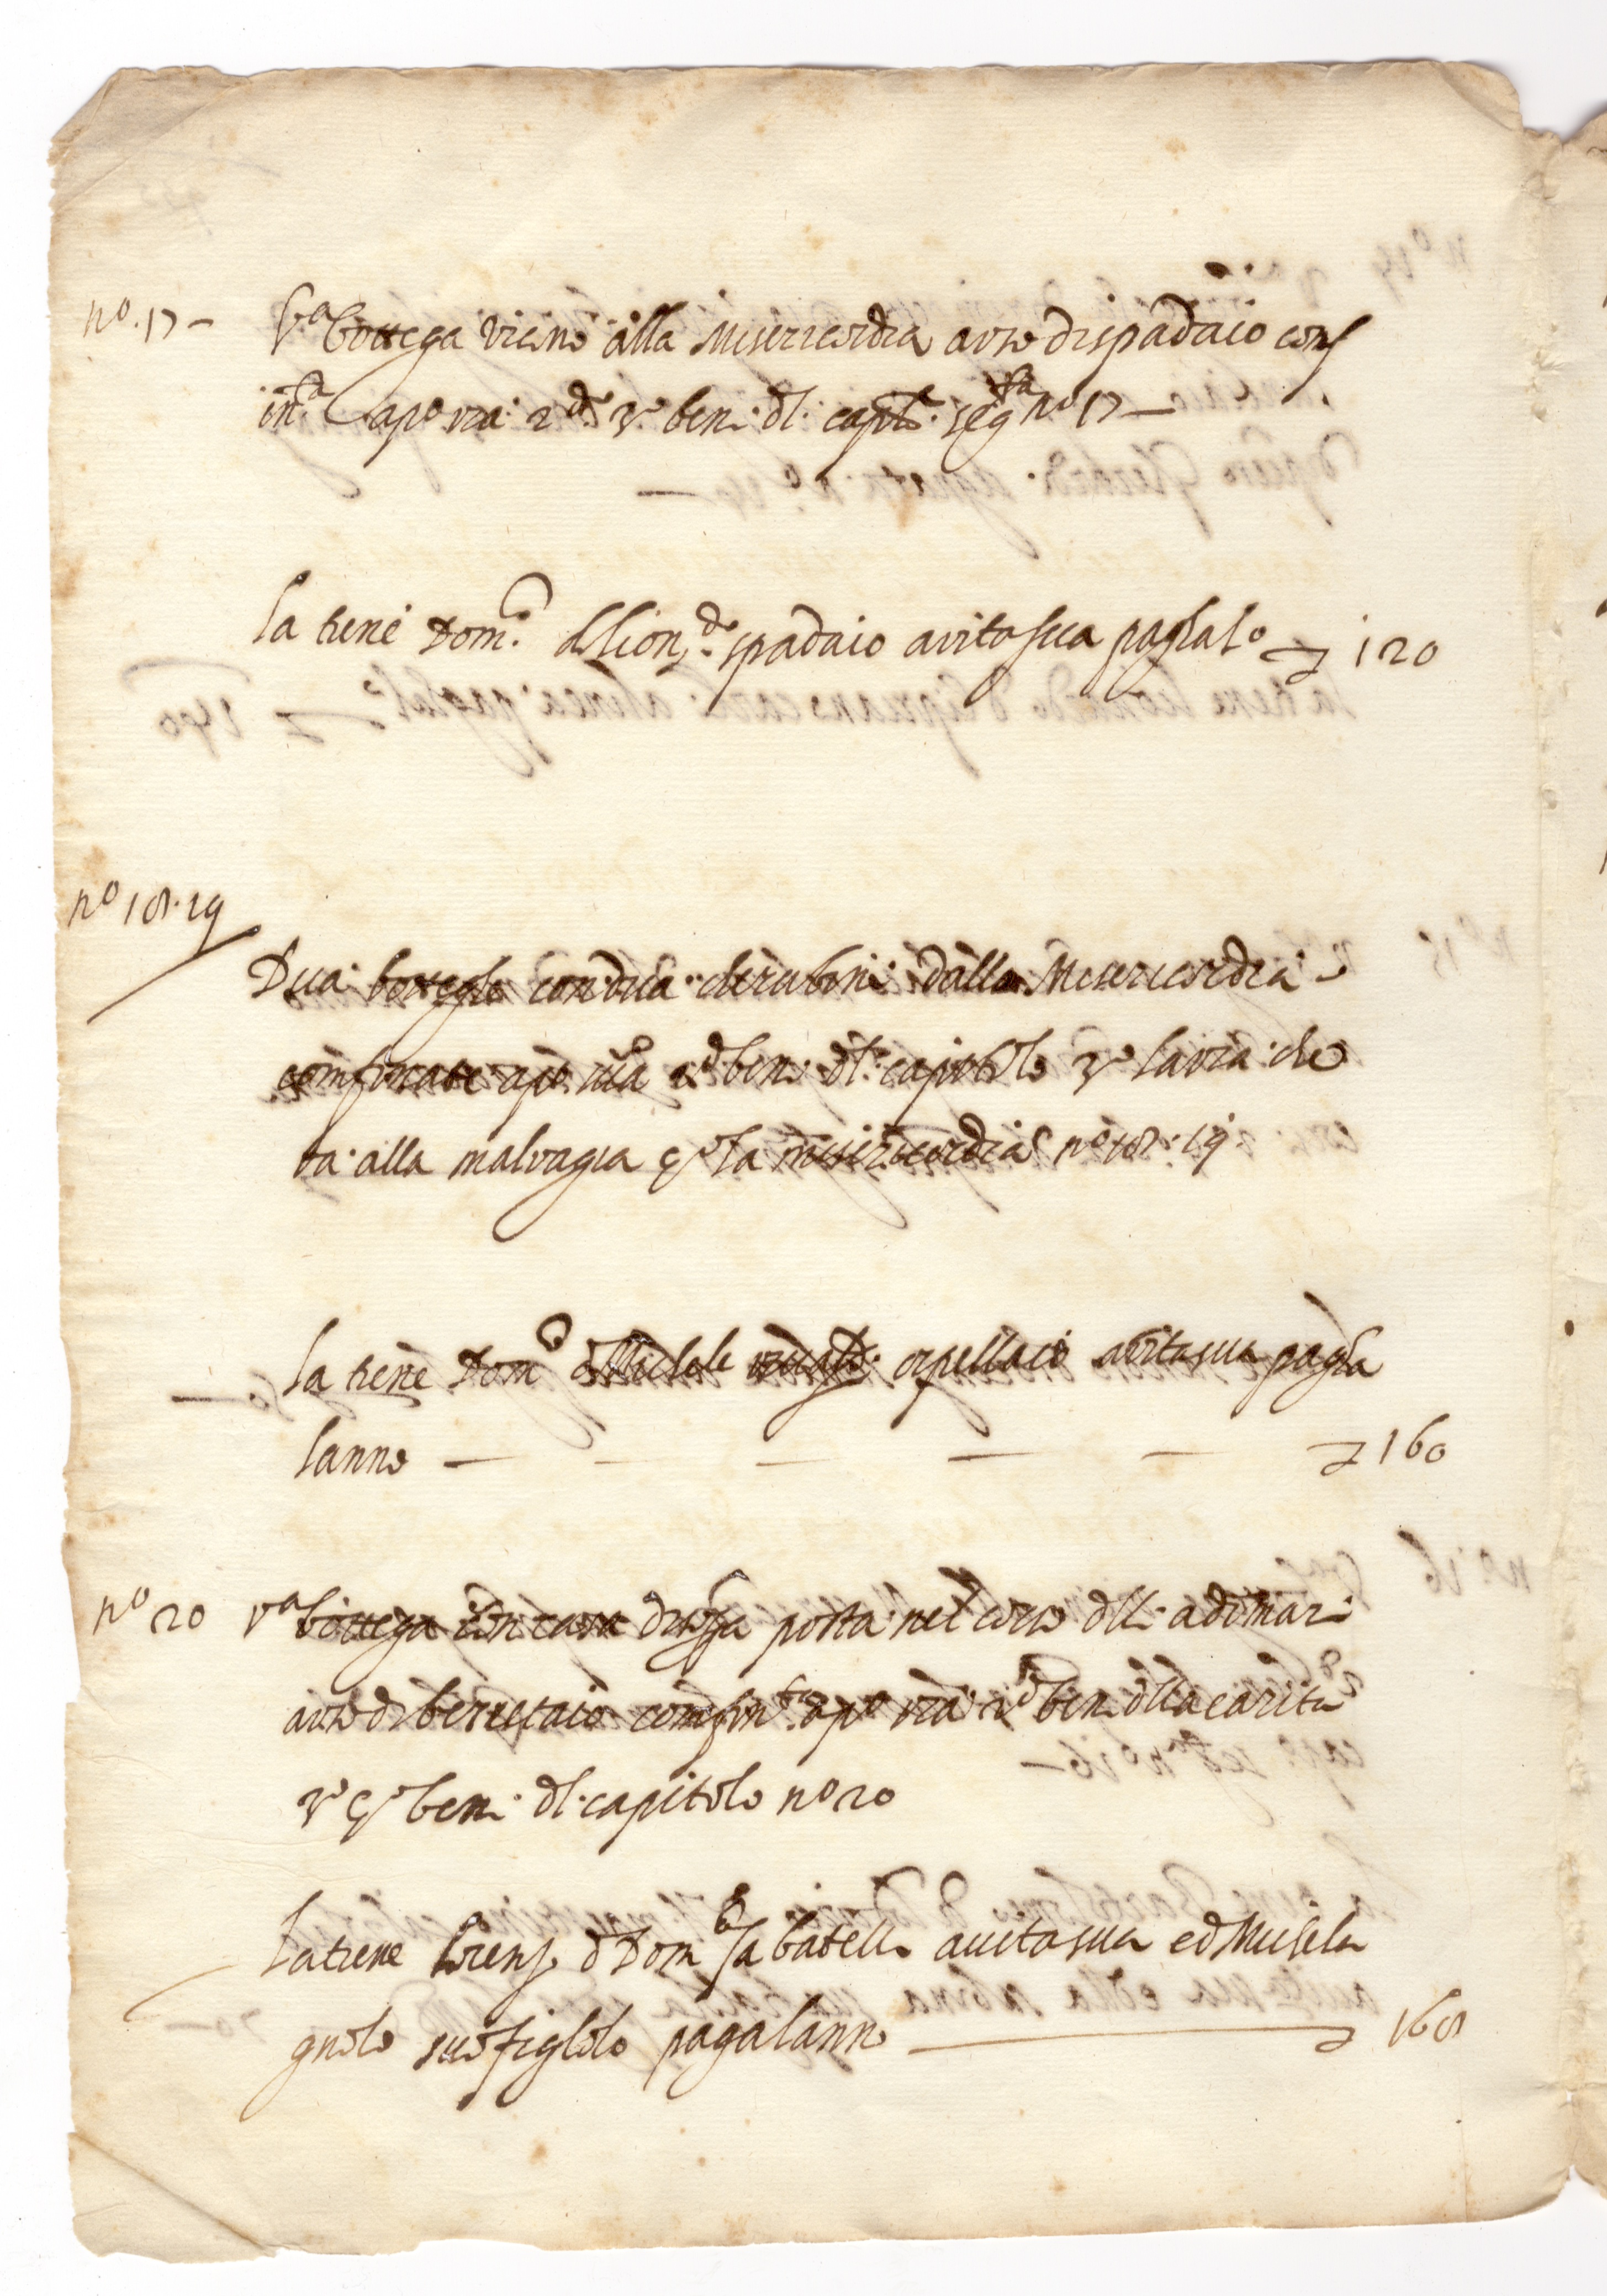 no. 17 - Va bottega vicino alla Misericordia auso dispadaio conf
in.a apo via 2o 3o ben. dl. capto. sega no 17 —
la tiene Dom.o dlion.do spadaio avitasua paghalo 120
no 18. 19
Dua botteghe con dua cierubini dalla Misericordia
comfinate apo via 2o ben. dl. capitolo 3o lavia che
va alla malvagia 4o la misericordia no 18. 19
la tiene Domo dMichele orpellaio avitasua pagha
lanno — — — — — 160
no 20 va bottega con casa posta nel corso dlli adimari
auso di berettaio comfinta apo via 2o ben dlla carita
3o 4o beni dl. capitolo no 20
la tiene lorenzo d Domo sabatelli avitasua ed Michela
gnolo suo figlolo pagalanno — 168